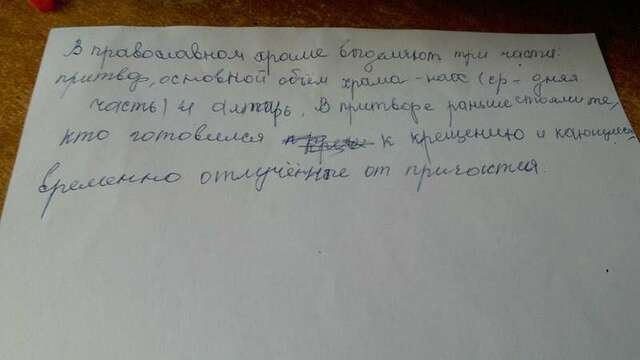 В православном храме выделяют три части:
притвор, основной объём храма - наос (ср-дняя
часть) и алтарь. В притворе раньше стояли те,
кто готовился к крещению и кающиеся,
временно отлучённые от причастия.